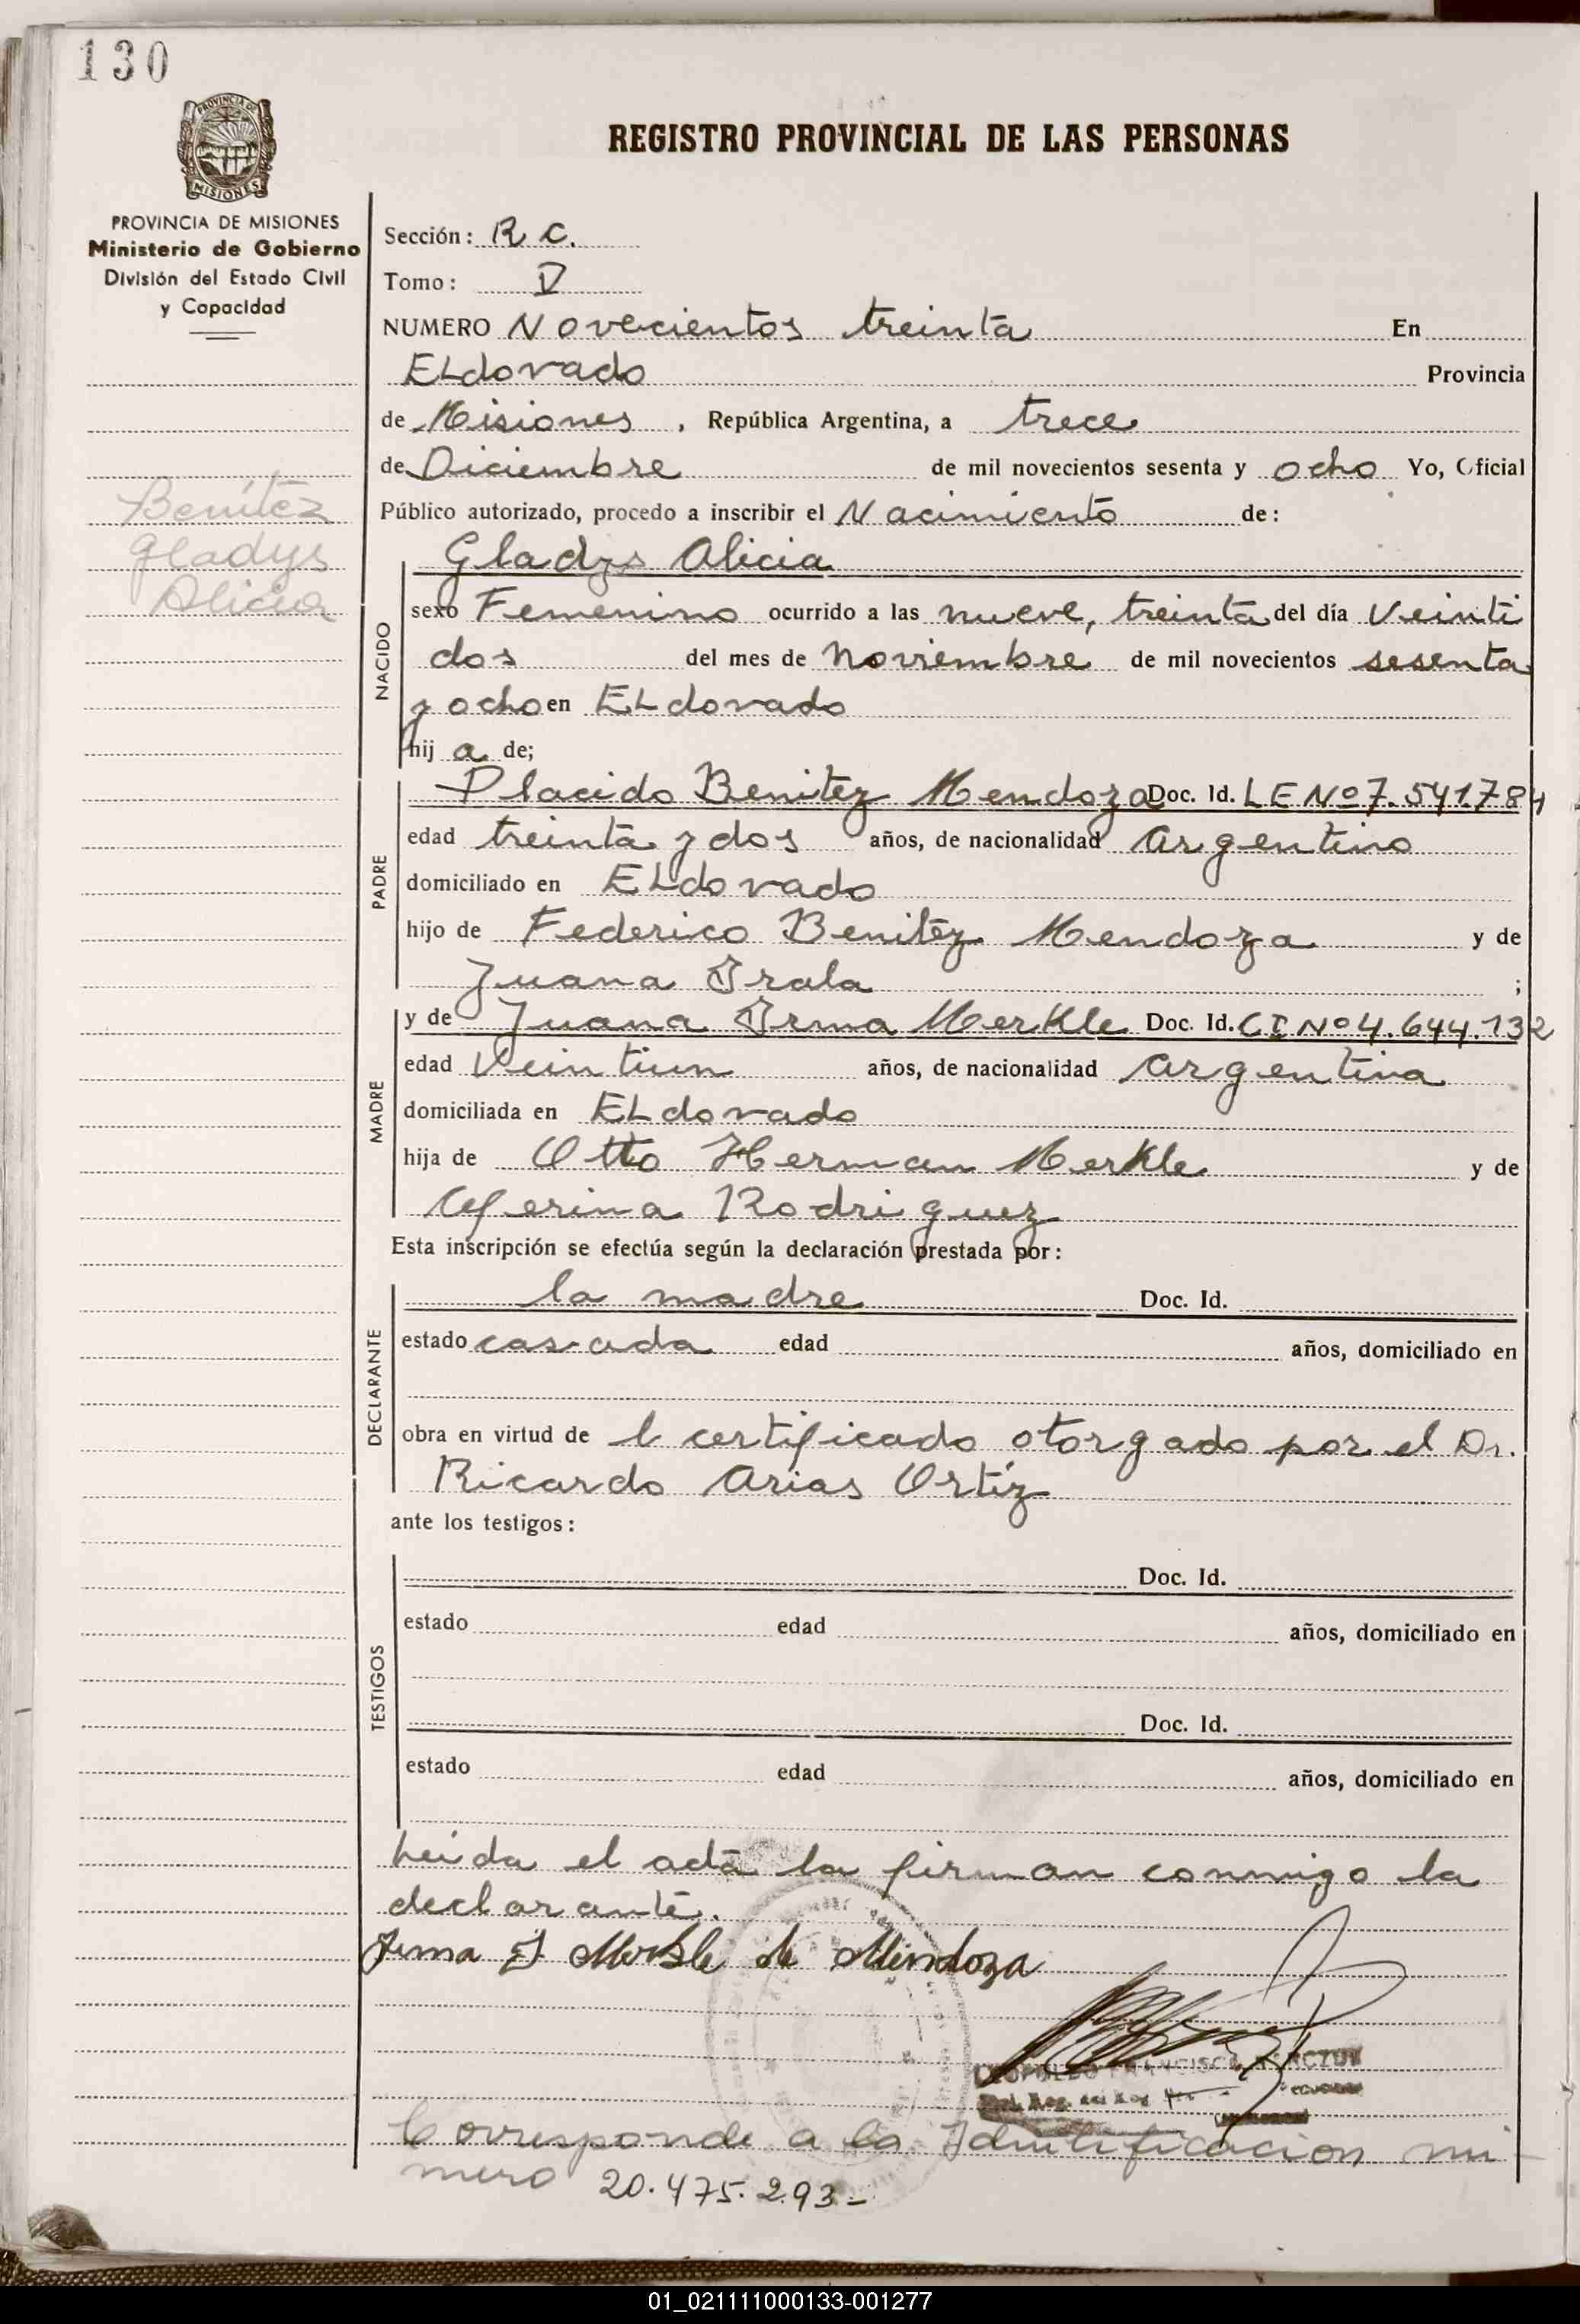 130
PROVINCIA DE
MISIONES
REGISTRO PROVINCIAL DE LAS PERSONAS
PROVINCIA DE MISIONES
Ministerio de Gobierno
División del Estado Civil
y Capacidad
Sección: R C.
Tomo: V
NUMERO Novecientos treinta En
ELdorado Provincia
de Misiones, República Argentina, a trece
de Diciembre de mil novecientos sesenta y ocho Yo, Oficial
Público autorizado, procedo a inscribir el Nacimiento de:
Benítez
Gladys
Alicia
Gladys Alicia
NACIDO
sexo Femenino ocurrido a las nueve, treinta del día Veinti
dos del mes de Noviembre de mil novecientos sesenta
y ocho en ELdorado
hij a de;
PADRE
Placido Benitez Mendoza Doc. Id. L E Nº 7.541.784
edad treinta y dos años, de nacionalidad Argentino
domiciliado en ELdorado
hijo de Federico Benitez Mendoza y de
Juana Irala ;
MADRE
y de Juana Irma Merkle Doc. Id. C I Nº 4.644.132
edad Veintiun años, de nacionalidad Argentina
domiciliada en ELdorado
hija de Otto Herman Merkle y de
Ceferina Rodriguez
Esta inscripción se efectúa según la declaración prestada por:
DECLARANTE
la madre Doc. Id.
estado casada edad años, domiciliado en
obra en virtud de l certificado otorgado por el Dr.
Ricardo Arias Ortíz
ante los testigos:
TESTIGOS
Doc. Id.
estado edad años, domiciliado en
Doc. Id.
estado edad años, domiciliado en
Leida el acta la firman conmigo la
declarante.
Irma J Merkle de Mendoza
LEOPOLDO FRANCISCO
Corresponde a la Identificacion nu
mero 20.475.293-
01_021111000133-001277